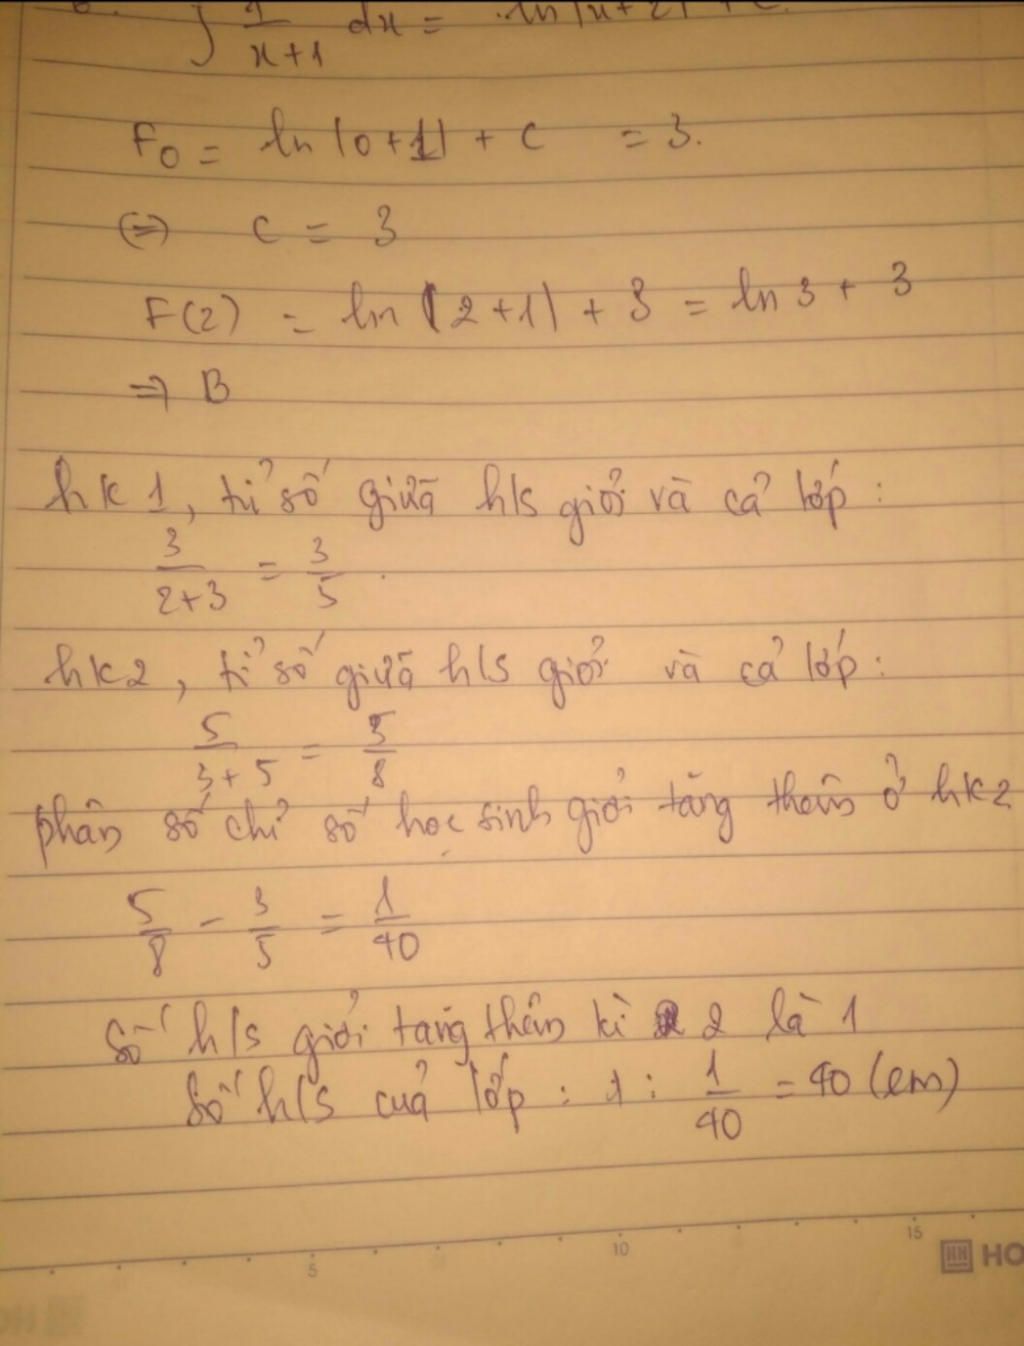 ∫ 1/(x+1) dx = ln|x+2| + c.
F0 = ln|0+1| + C = 3.
(=) C = 3
F(2) = ln|2+1| + 3 = ln3 + 3
=> B
hk1, tỉ số giữa h/s giỏi và cả lớp:
3/(2+3) = 3/5.
hk2, tỉ số giữa h/s giỏi và cả lớp:
5/(3+5) = 5/8
phân số chỉ số học sinh giỏi tăng thêm ở hk2
5/8 - 3/5 = 1/40
Số h/s giỏi tăng thêm kì 2 là 1
Số h/s cuả lớp : 1 : 1/40 = 40 (em)
5 10 15
HO